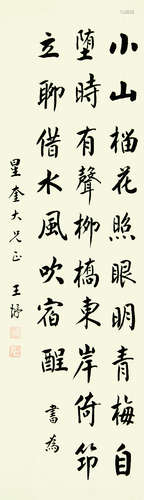 小山榴花照眼明青梅自
堕時有聲柳橋東岸倚筇
立聊借水風吹宿酲
書為
星奎大兄正 王